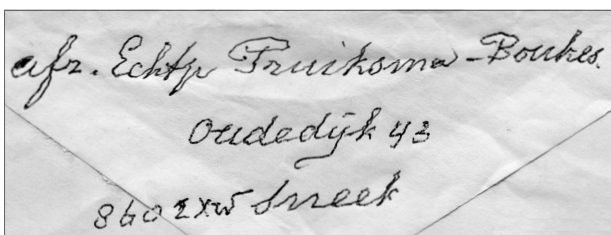 afz. Echtp Pruiksma-Boukes.
Oudedijk 43
8602XW Sneek